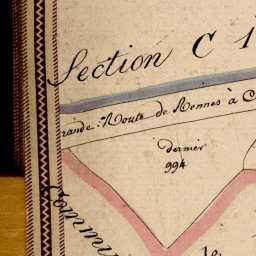 Section C 1
rande Route de Rennes à C
Dernier
994
Commu
le